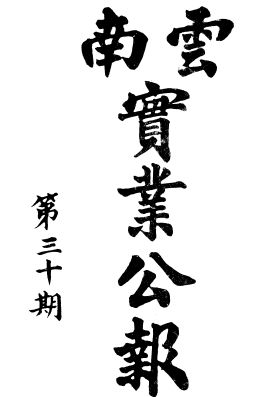 雲南
實業公報
第三十期